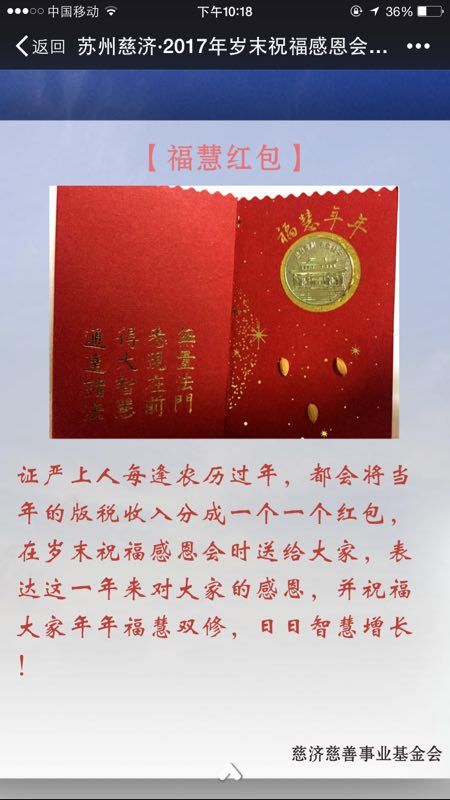 中国移动 下午10:18 36%
返回 苏州慈济·2017年岁末祝福感恩会...
【福慧红包】
福慧年年
無量法門
悉現在前
得大智慧
通達諸法
证严上人每逢农历过年，都会将当
年的版税收入分成一个一个红包，
在岁末祝福感恩会时送给大家，表
达这一年来对大家的感恩，并祝福
大家年年福慧双修，日日智慧增长
！
慈济慈善事业基金会